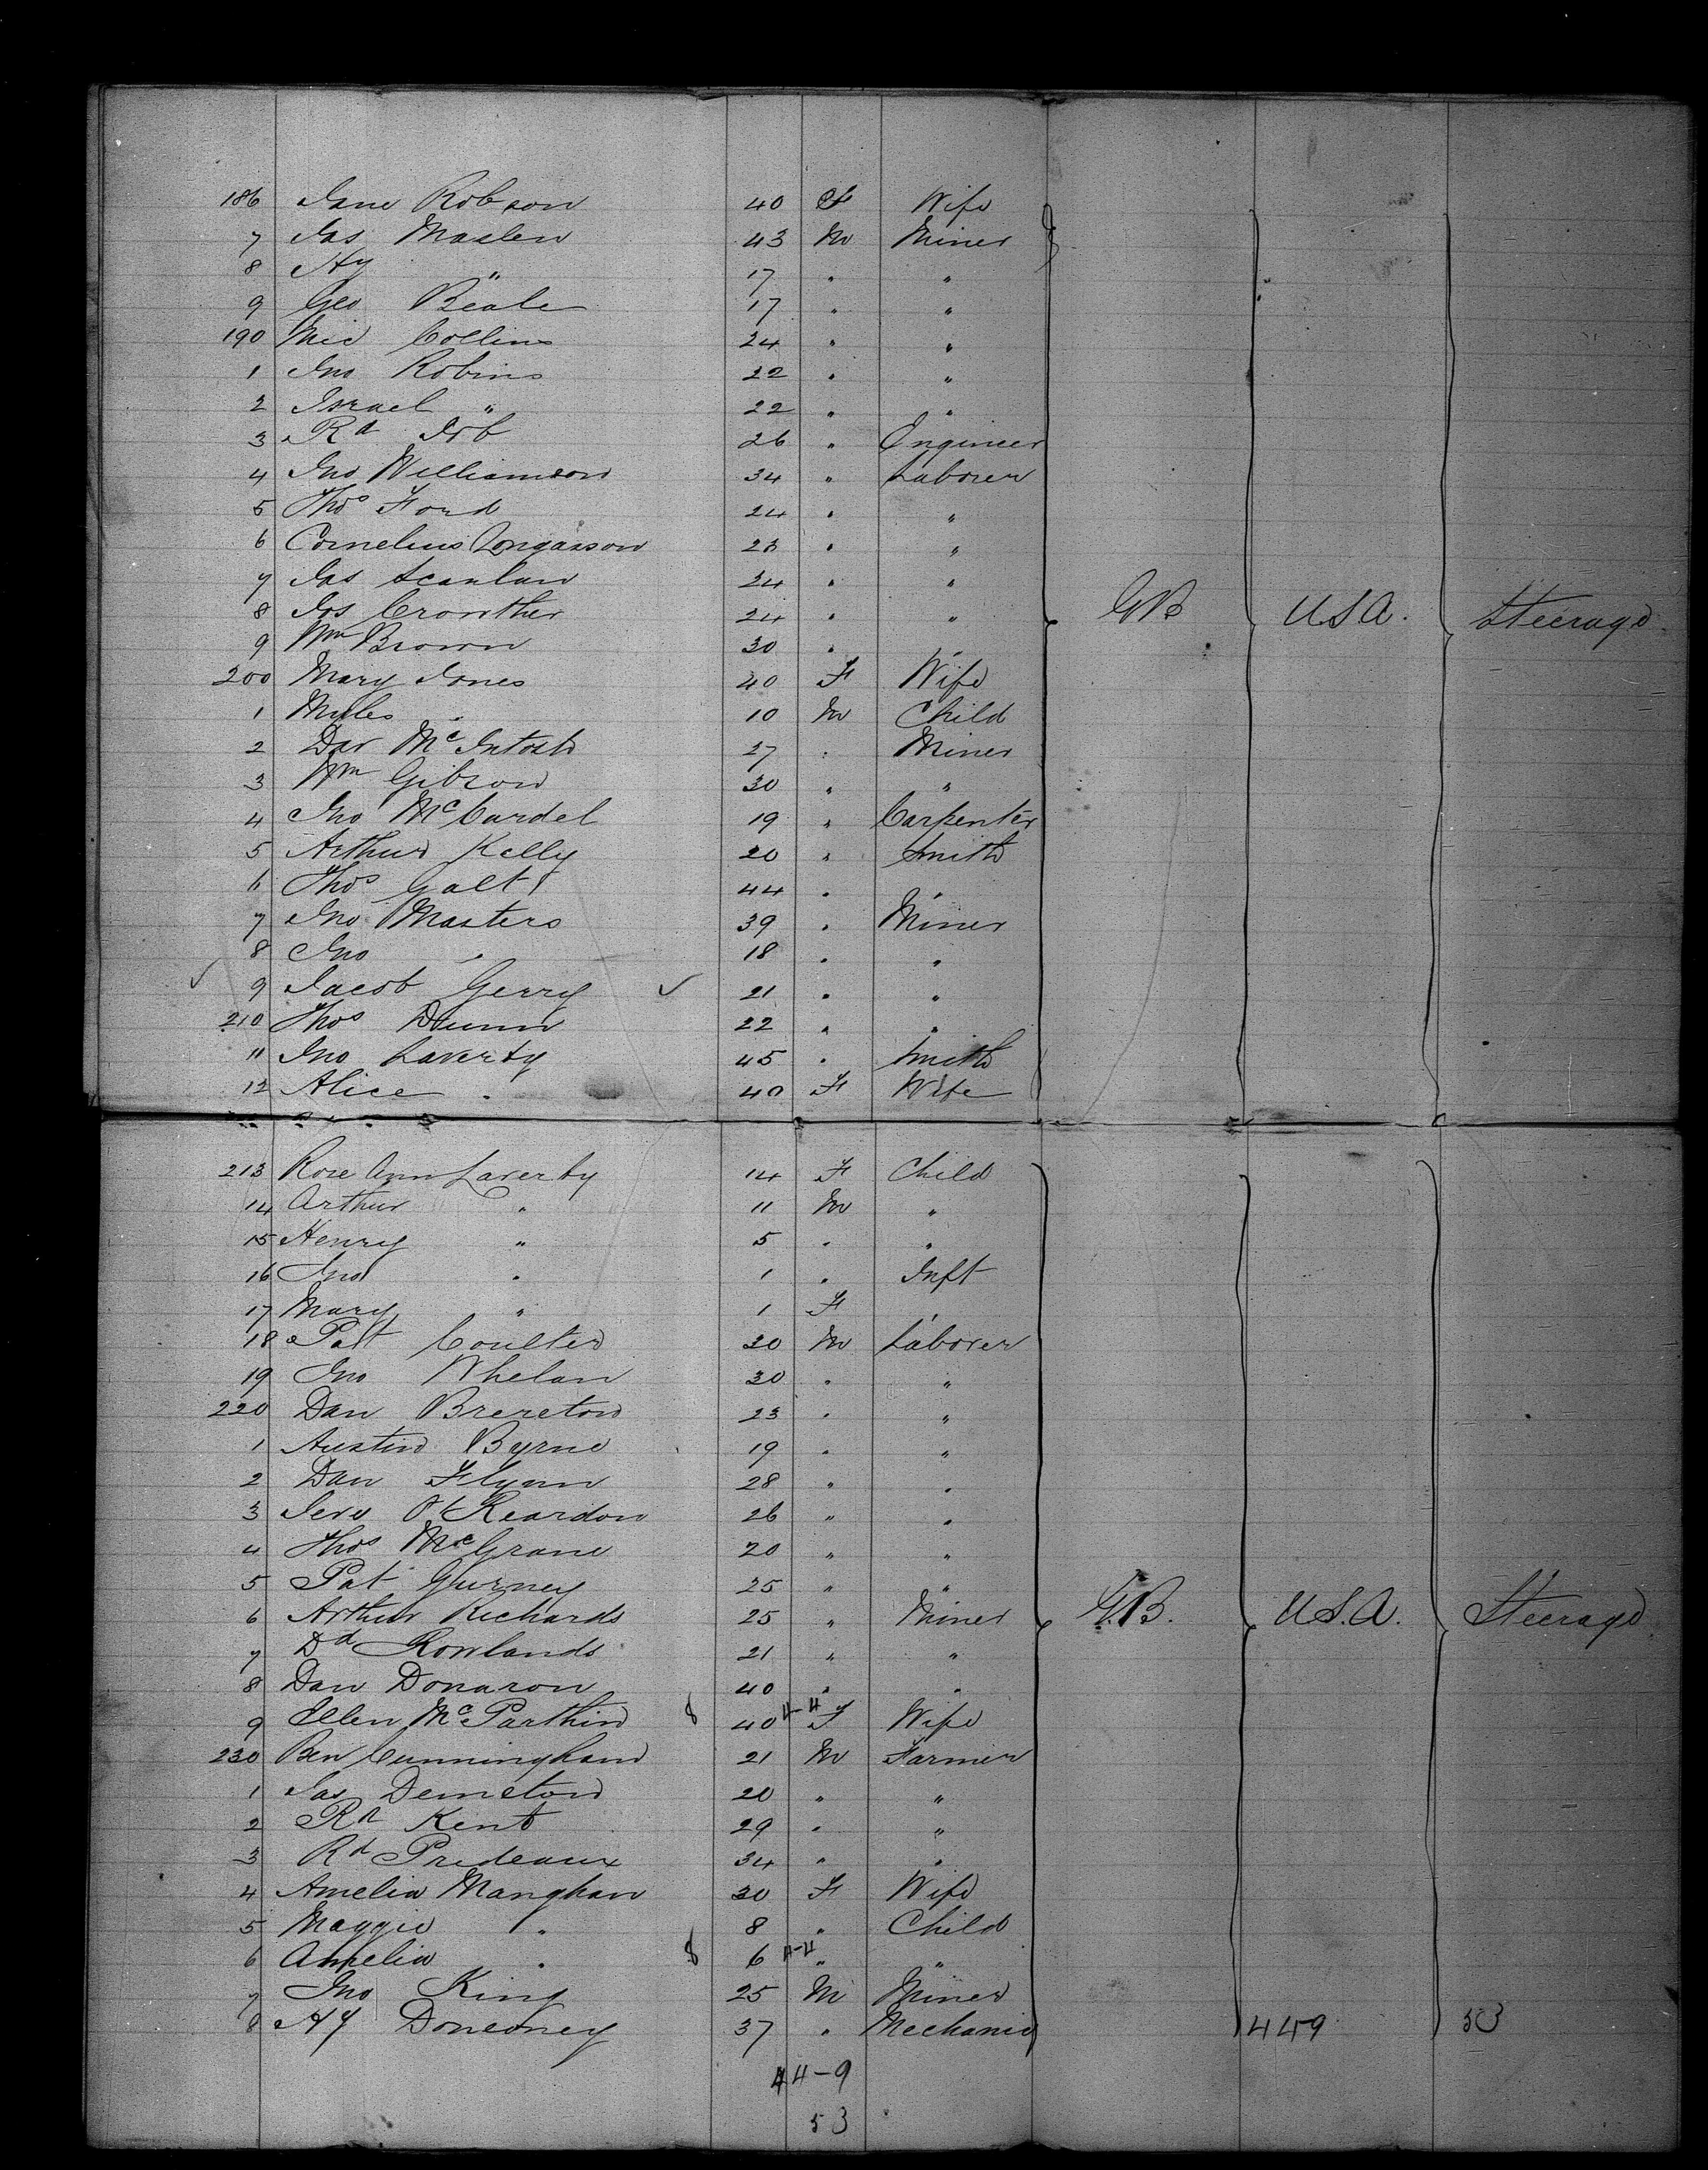 186 Jane Robson 40 F Wife
7 Jas Maslen 43 M Miner
8 Hy " 17 " "
9 Geo Beale 17 " "
190 Mic Collins 24 " "
1 Jno Robins 22 " "
2 Israel " 22 " "
3 Rd Job 26 " Engineer
4 Jno Williamson 34 " Laborer
5 Thos Ford 24 " "
6 Cornelius 23 " "
7 Jas Scanlan 24 " "
8 Jos Crowther 24 " " GB USA. Steerage
9 Wm Brown 30 " "
200 Mary Jones 40 F Wife
1 Myles " 10 M Child
2 Dav McIntosh 27 " Miner
3 Wm Gibson 30 " "
4 Jno McCardel 19 " Carpenter
5 Arthur Kelly 20 " Smith
6 Thos Galt 44 " "
7 Jno Masters 39 " Miner
8 Jno " 18 " "
9 Jacob Gerry 21 " "
210 Thos Dunn 22 " "
11 Jno Laverty 45 " Smith
12 Alice " 40 F Wife
213 Rose Ann Laverty 14 F Child
14 Arthur " 11 M "
15 Henry " 5 " "
16 Jno " 1 " Inft
17 Mary " 1 F "
18 Pat Coulter 20 M Laborer
19 Jno Whelan 30 " "
220 Dan Brereton 23 " "
1 Austin Byrne 19 " "
2 Dan Flynn 28 " "
3 Jere O'Reardon 26 " "
4 Thos McGrane 20 " "
5 Pat Gurney 25 " "
6 Arthur Richards 25 " Miner G.B. U.S.A. Steerage
7 Dd Rowlands 21 " "
8 Dan Donaron 40 " "
9 Ellen McParthin 40 F Wife
230 Ben Cunningham 21 M Farmer
1 Jas Demeton 20 " "
2 Rd Kent 29 " "
3 Rd Prideaux 34 " "
4 Amelia Manghan 30 F Wife
5 Maggie " 8 " Child
6 Amelia " 6 " "
7 Jno King 25 M Miner
8 Hy Doneoney 37 " Mechanic 449 53
44-9
53